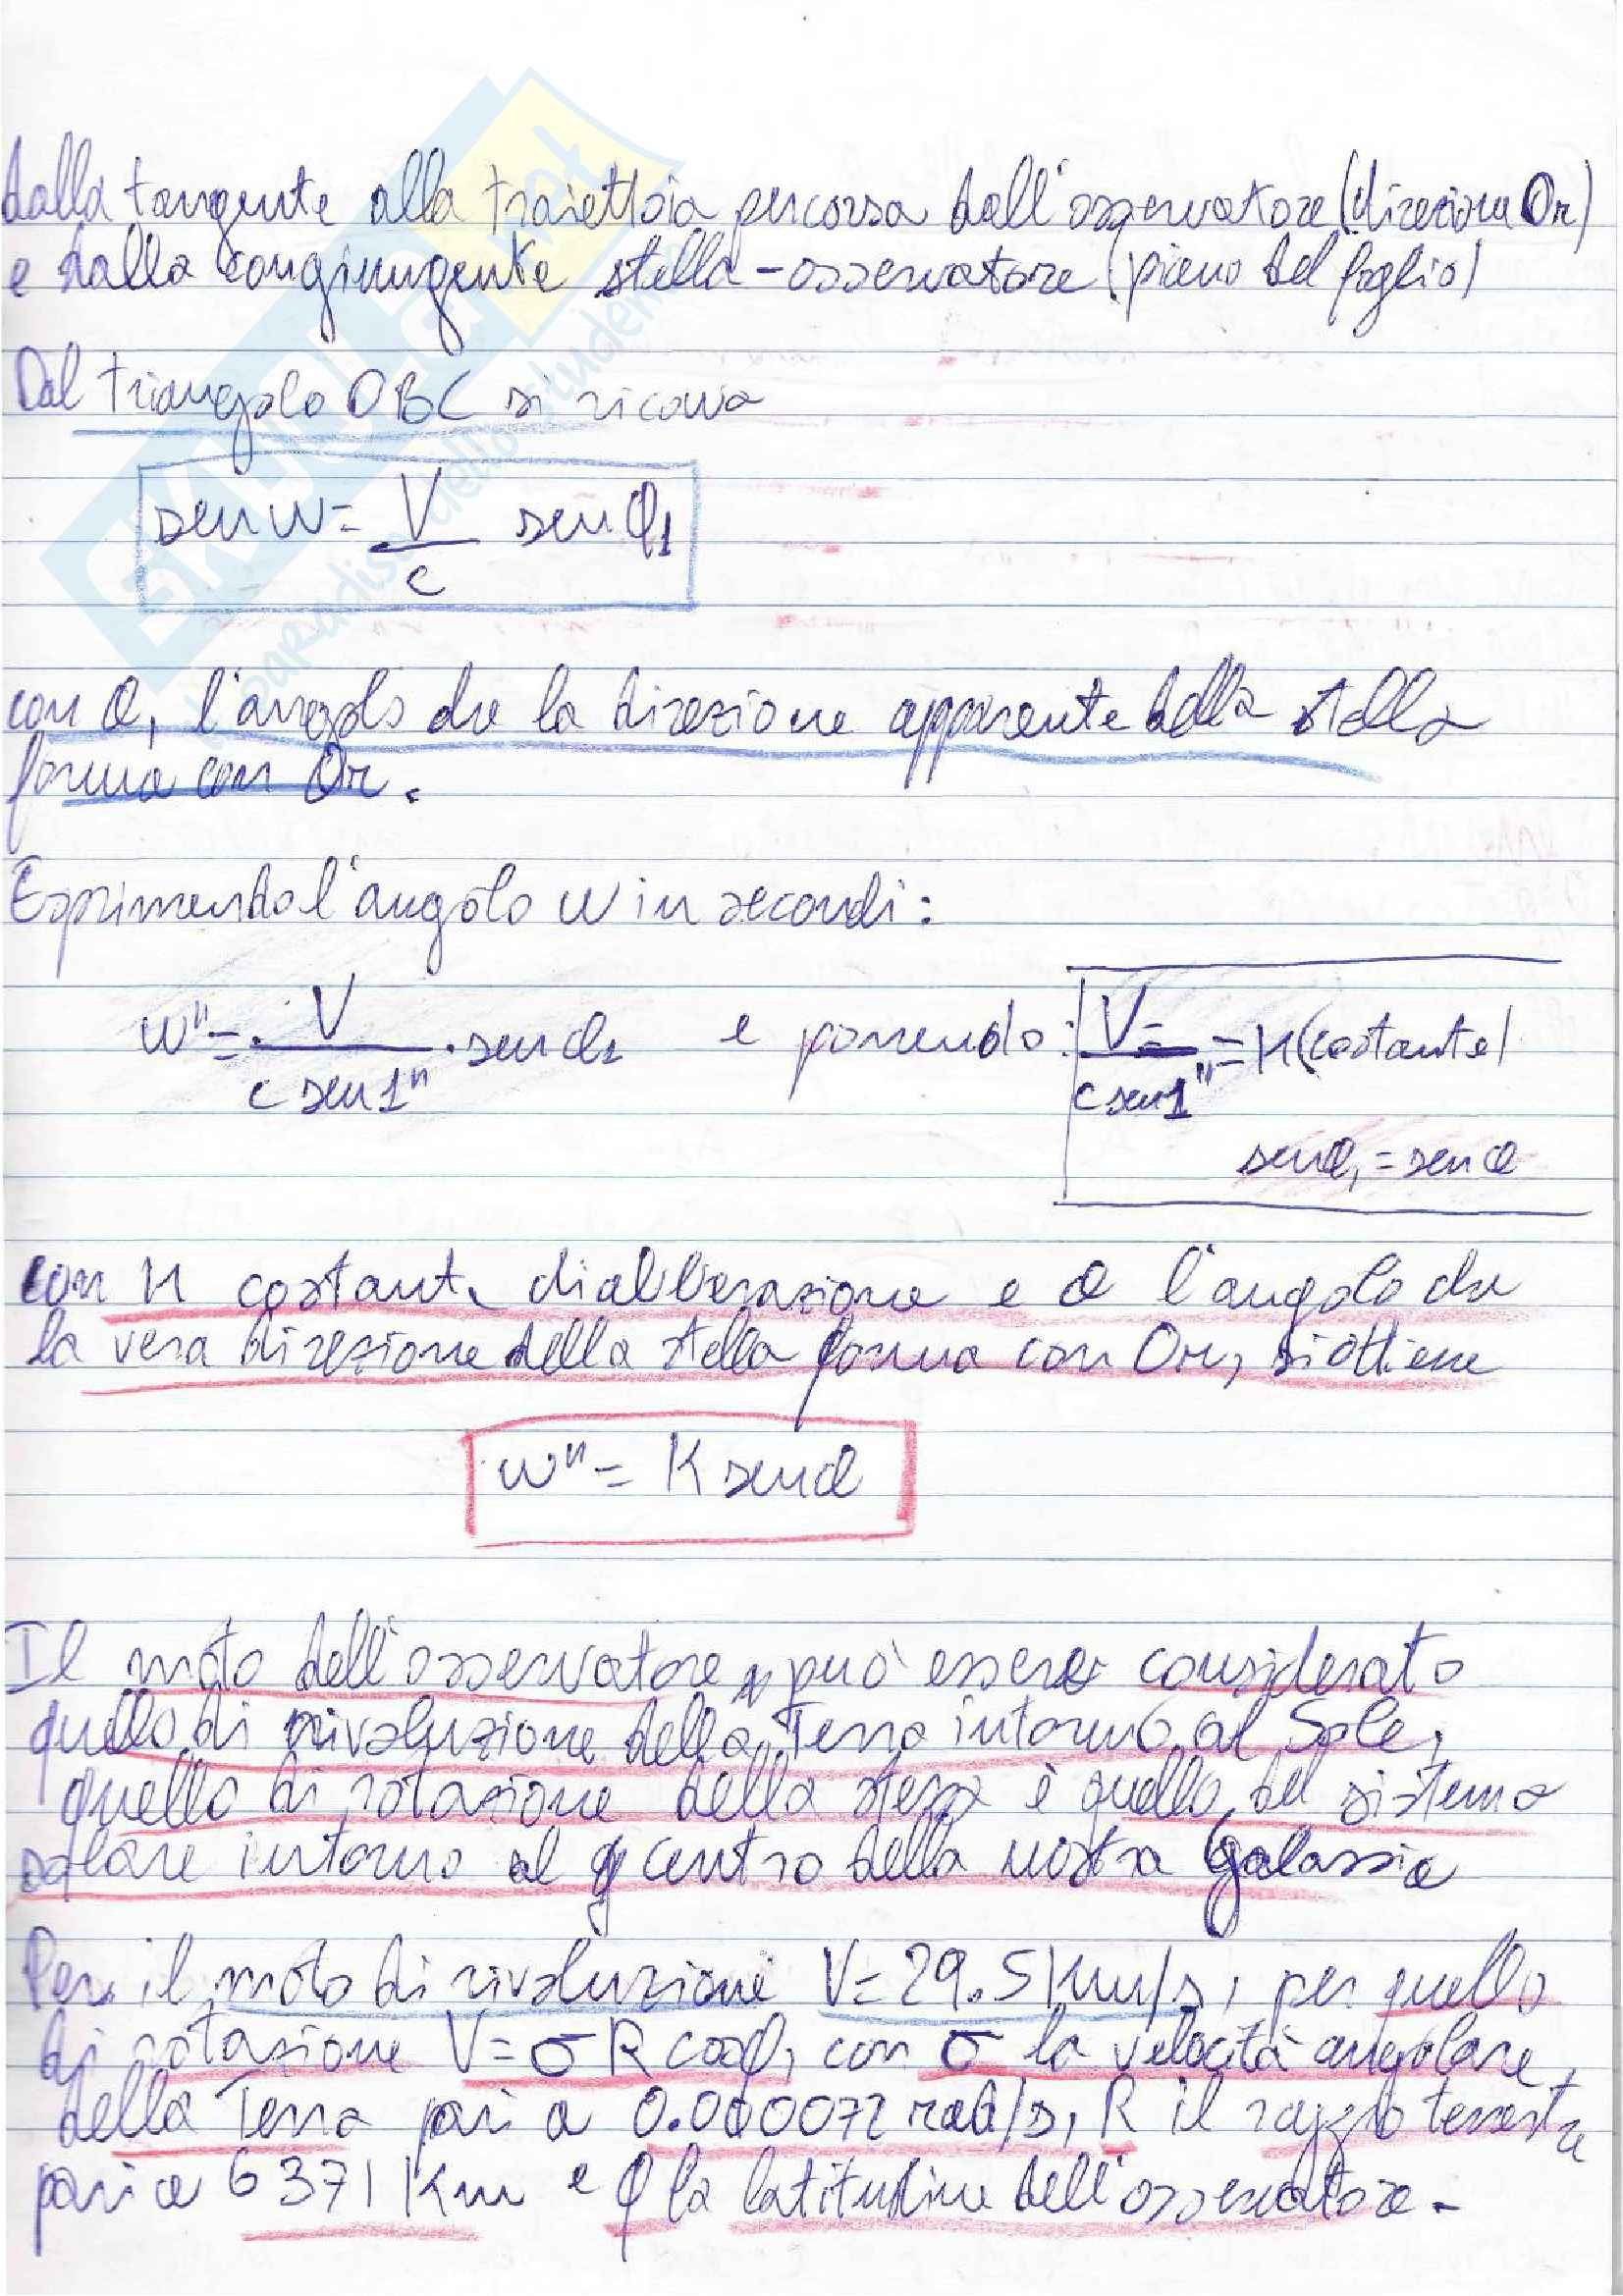 dalla tangente alla traiettoia percorsa dall'osservatore (direzione Om)
e dalla congiungente stella-osservatore (piano del foglio)
Dal triangolo OBC si ricava
sen w = V/c sen θ1
con θ1 l'angolo che la direzione apparente della stella
forma con Om.
Esprimendo l'angolo w in secondi:
w" = V/(c sen 1") · sen θ1 e ponendo: V/(c sen 1") = K (costante)
sen θ1 = sen θ
con K costante di abberazione e θ l'angolo che
la vera direzione della stella forma con Om, si ottiene
w" = K sen θ
Il moto dell'osservatore può essere considerato
quello di rivoluzione della Terra intorno al Sole,
quello di rotazione della stessa e quello del sistema
solare intorno al centro della nostra Galassia
Per il moto di rivoluzione V = 29.5 Km/s, per quello
di rotazione V = σ R cos φ, con σ la velocità angolare
della Terra pari a 0.000072 rad/s, R il raggio terrestre
pari a 6371 Km e φ la latitudine dell'osservatore.
skuola.net
il paradiso dello studente